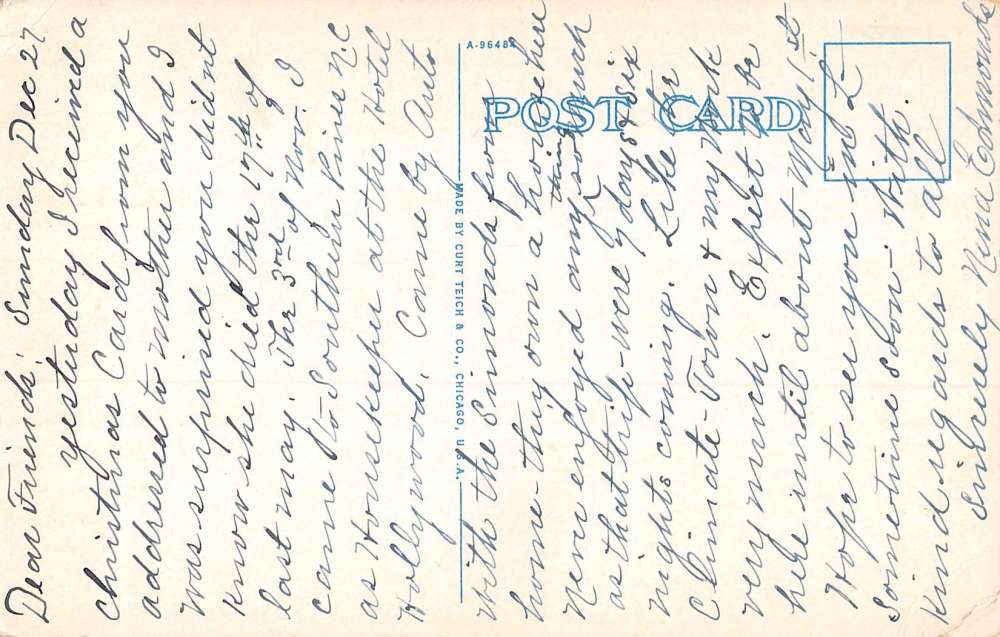 Dear Friends; Sunday Dec 27
yesterday I received a
Christmas Card from you
addressed to mother and I
was surprised you didnt
know she died the 17th of
last may. The 3rd of Nov. I
came to Southern Pines N.C
as Housekeeper at the Hotel
Hollywood. Came by Auto
with the Simonds from
home - they own a home here
Never enjoyed any thing so much
as that trip - were 7 days & six
nights coming. Like the
Climate - Town & my work
very much. Expect to be
here until about May 1st
Hope to see you and L
sometime soon - with.
Kind regards to all
Sincerely Nena Edmonds
A-96484
POST CARD
MADE BY CURT TEICH & CO., CHICAGO, U.S.A.